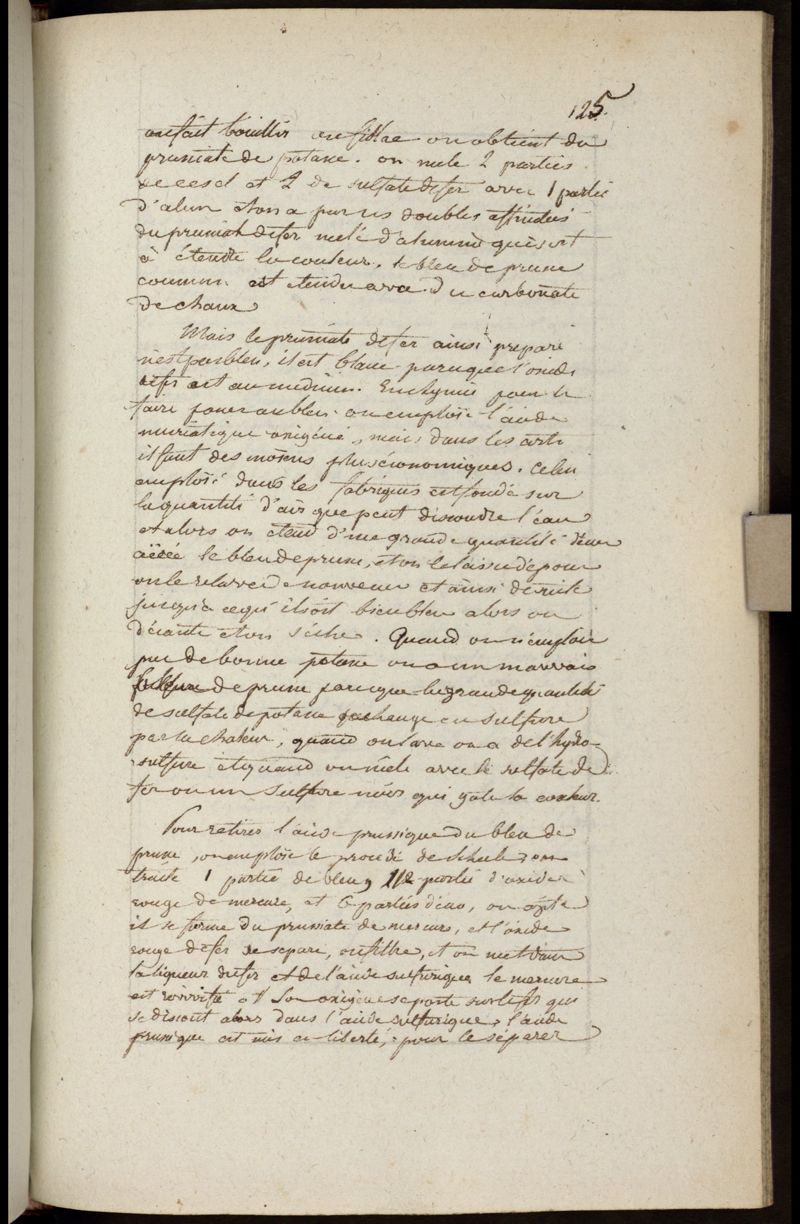 125.
on fait bouillir on filtre on obtient du
prussiate de potasse. on mele 2 parties
de ce sel et 2 de sulfate de fer avec 1 partie
d'alun et on a par les doubles affinités
du prussiate de fer melé d'alumine qui sert
à étendre la couleur. le bleu de prusse
commun est etendu avec du carbonate
de chaux
Mais le prussiate de fer ainsi preparé
n'est pas bleu, il est blanc parceque l'oxide
de fer est au minimum. En chymie pour le
faire passer au bleu on emploïe l'acide
muriatique oxigéné, mais dans les arts
il faut des moïens plus économiques. Celui
emploïé dans les fabriques est fondé sur
la quantité d'air que peut dissoudre l'eau
et alors on etend d'une grande quantité d'eau
aëréé le bleu de prusse, et on le laisse déposer
on le relave de nouveau et ainsi de suite
jusqu'à ce qu'il soit bien bleu alors on
décante et on séche. Quand on n'emploie
pas de bonne potasse on a un mauvais
bleu de prusse parceque la grande quantité
de sulfate de potasse se change en sulfure
par la chaleur, quand on lave on a de l'hydro-
sulfure et quand on mêle avec le sulfate de
fer on a un sulfure noir qui gate la couleur.
Pour retirer l'acide prussique du bleu de
prusse, on emploïe le procédé de Schule, on
traite 1 partie de bleu, 1/2 partie d'oxide
rouge de mercure, et 6 parties d'eau, on agite
il se forme du prussiate de mercure, et l'oxide
rouge de fer se separe, on filtre, et on met dans
la liqueur du fer et de l'acide sulfurique le mercure
est revivifié et son oxigène se porte sur le fer qui
se dissout alors dans l'acide sulfurique, l'acide
prussique est mis en liberté, pour le séparer